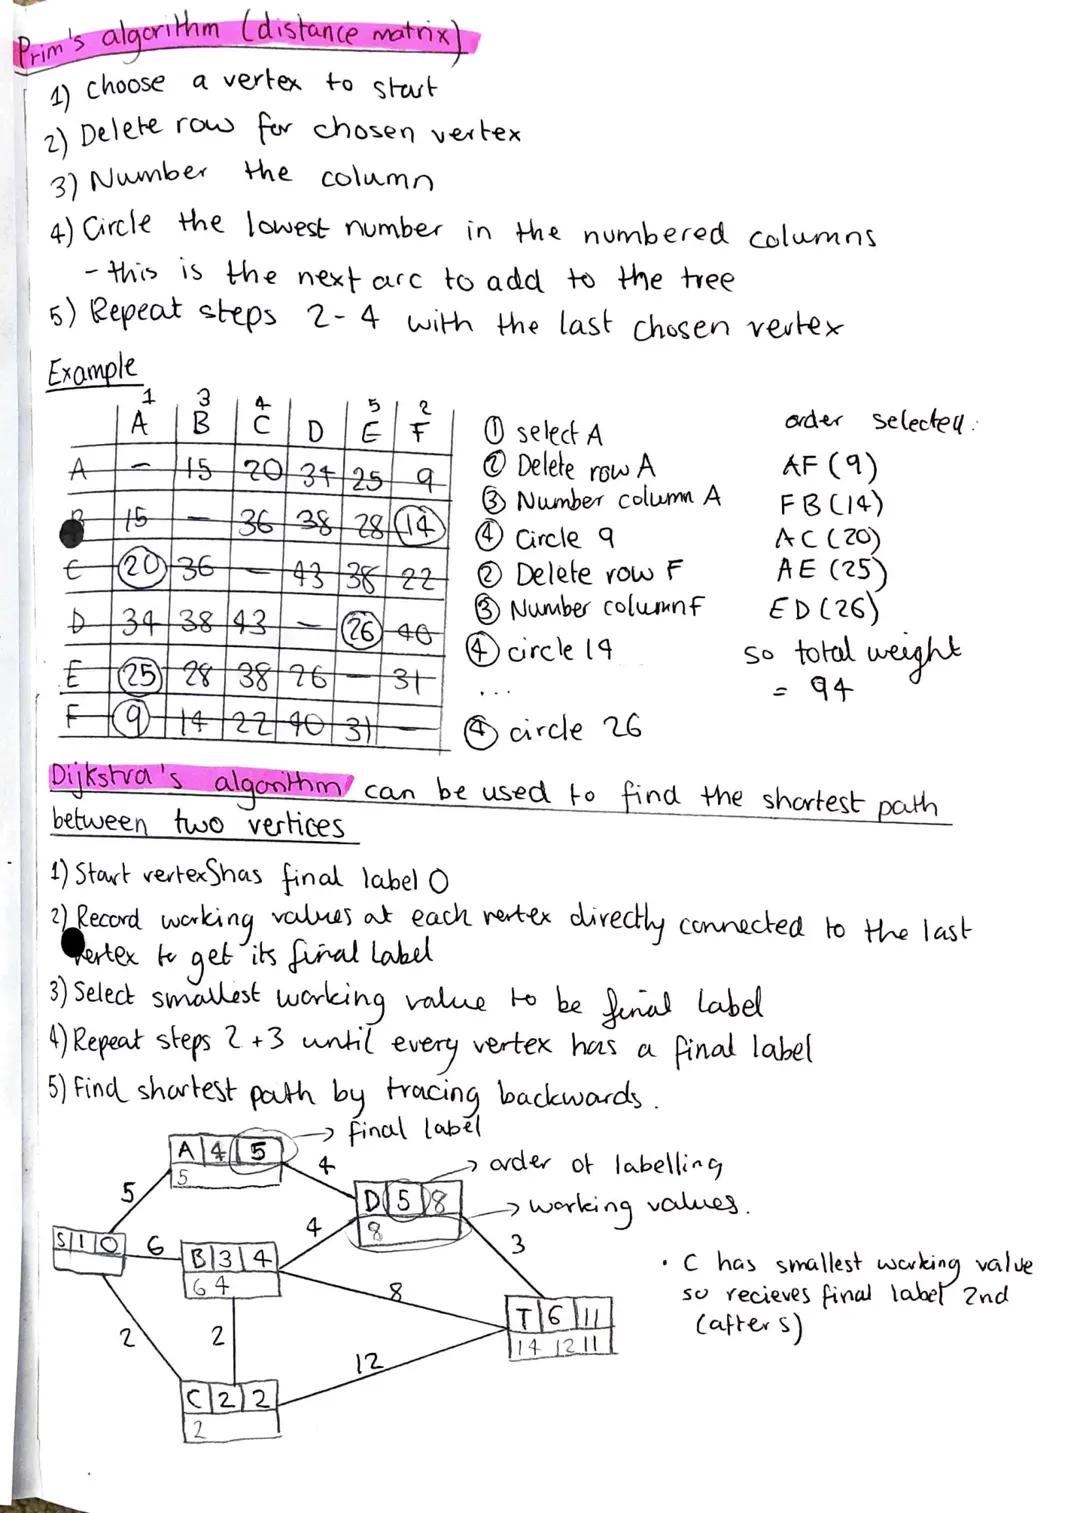 Prim's algorithm (distance matrix)
1) Choose a vertex to start
2) Delete row for chosen vertex
3) Number the column
4) Circle the lowest number in the numbered columns
- this is the next arc to add to the tree
5) Repeat steps 2-4 with the last chosen vertex
Example
1 3 4 5 2
A B C D E F
A - 15 20 34 25 9
B 15 - 36 38 28 14
C 20 36 - 43 38 22
D 34 38 43 - 26 40
E 25 28 38 26 - 31
F 9 14 22 40 31 -
① select A
② Delete row A
③ Number column A
④ Circle 9
② Delete row F
③ Number column F
④ circle 14
...
④ circle 26
order selected:
AF (9)
FB (14)
AC (20)
AE (25)
ED (26)
so total weight
= 94
Dijkstra's algorithm can be used to find the shortest path
between two vertices
1) Start vertex S has final label 0
2) Record working values at each vertex directly connected to the last
vertex to get its final label
3) Select smallest working value to be final label
4) Repeat steps 2 + 3 until every vertex has a final label
5) Find shortest path by tracing backwards.
→ final label
A 4 5
5
4
→ order of labelling
5
D 5 8
8
→ working values.
4
S 1 0
6
B 3 4
6 4
3
• C has smallest working value
so recieves final label 2nd
(after s)
8
T 6 11
14 12 11
2
2
12
C 2 2
2